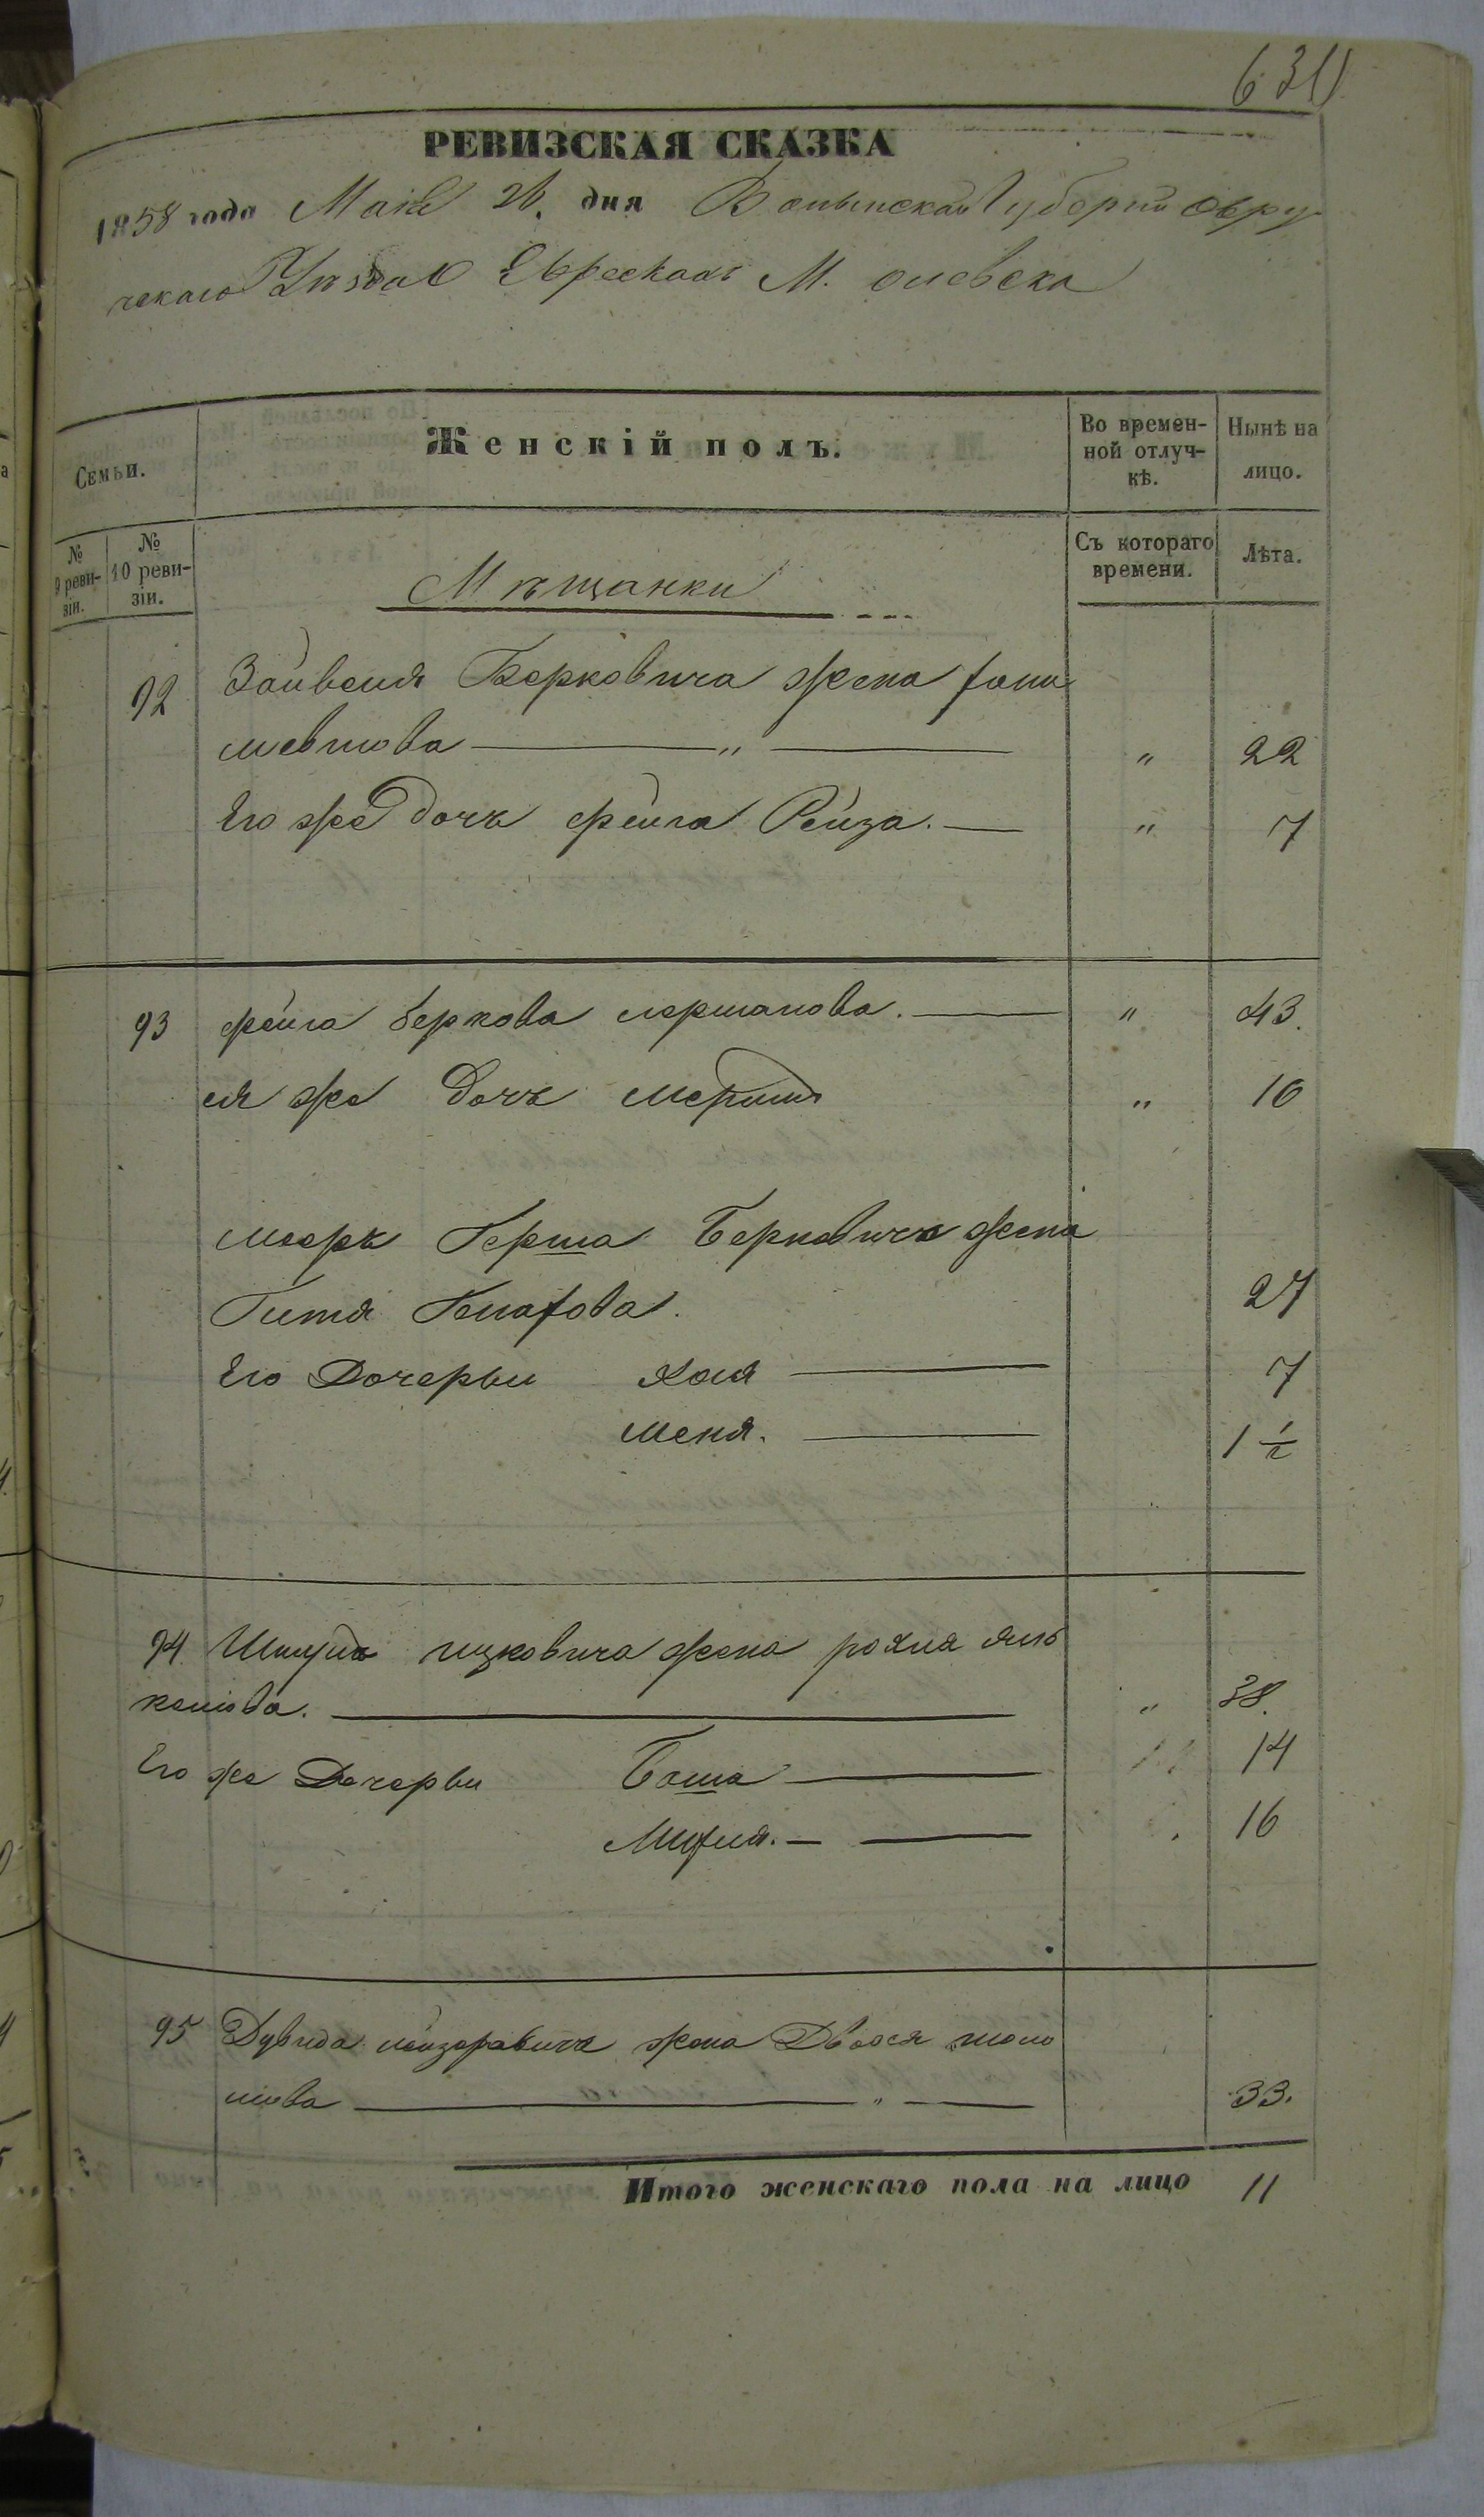 630
РЕВИЗСКАЯ СКАЗКА
1858 года Маія 26. дня Волынской Губерніи Овру-
чскаго Уѣзда Еврейскаго М. Олевска
Семьи.
Женскій полъ.
Во времен-
ной отлуч-
кѣ.
Нынѣ на
лицо.
№
9 реви-
зіи.
№
10 реви-
зіи.
Съ котораго
времени.
Лѣта.
Мѣщанки
92 Зайвеля Берковича жена
" 22
Его же дочь фейга Рейза. " 7
93 фейга беркова лерманова. " 43.
ея же дочь " 10
Герша Берковича жена
Гитя 27
Его Дочерьи хая 7
меня. 1 1/2
94 Шмуля ицковича жена рохля янь
келова. " 38.
Его же Дочерьи Баша 14
16
95 Дувида лейзоровича жена Двося шоло
мова " 33.
Итого женскаго пола на лицо 11